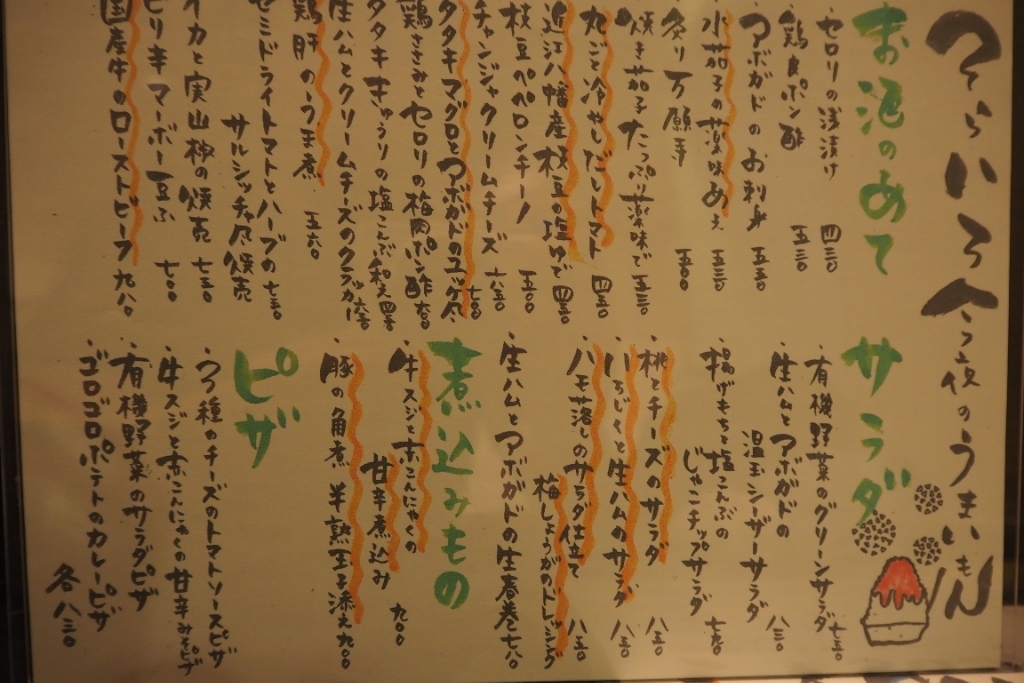 そらいろ 今夜のうまいもん
お酒のあて
セロリの浅漬け 四三〇
鶏皮ポン酢 五三〇
アボガドのお刺身 五五〇
水茄子の薬味あえ 五三〇
炙り万願寺 五〇〇
焼き茄子たっぷり薬味で 五三〇
丸ごと冷やしだしトマト 四五〇
近江八幡産枝豆の塩ゆで 四五〇
枝豆ペペロンチーノ 五〇〇
チャンジャクリームチーズ 六五〇
タタキマグロとアボガドのユッケ風 七〇〇
鶏ささみとセロリの梅肉ポン酢 六〇〇
タタキきゅうりの塩こんぶ和え 四五〇
生ハムとクリームチーズのクラッカー 六五〇
鶏肝のうま煮 五六〇
セミドライトマトとハーブの
サルシッチャ風焼売 七五〇
イカと実山椒の焼売 七五〇
ピリ辛マーボー豆ふ 七〇〇
国産牛のローストビーフ 九八〇
サラダ
・有機野菜のグリーンサラダ 七三〇
・生ハムとアボガドの
温玉シーザーサラダ 八三〇
・揚げもちと塩こんぶの
じゃこチップサラダ 七五〇
・桃とチーズのサラダ 八五〇
・いちじくと生ハムのサラダ 八五〇
・ハモ落しのサラダ仕立て
梅しょうがのドレッシング 八五〇
・生ハムとアボガドの生春巻 七八〇
煮込みもの
・牛スジと赤こんにゃくの
甘辛煮込み 九〇〇
・豚の角煮 半熟玉子添え 九〇〇
ピザ
・4種のチーズのトマトソースピザ
・牛スジと赤こんにゃくの甘辛みそピザ
・有機野菜のサラダピザ
・ゴロゴロポテトのカレーピザ
各 八三〇